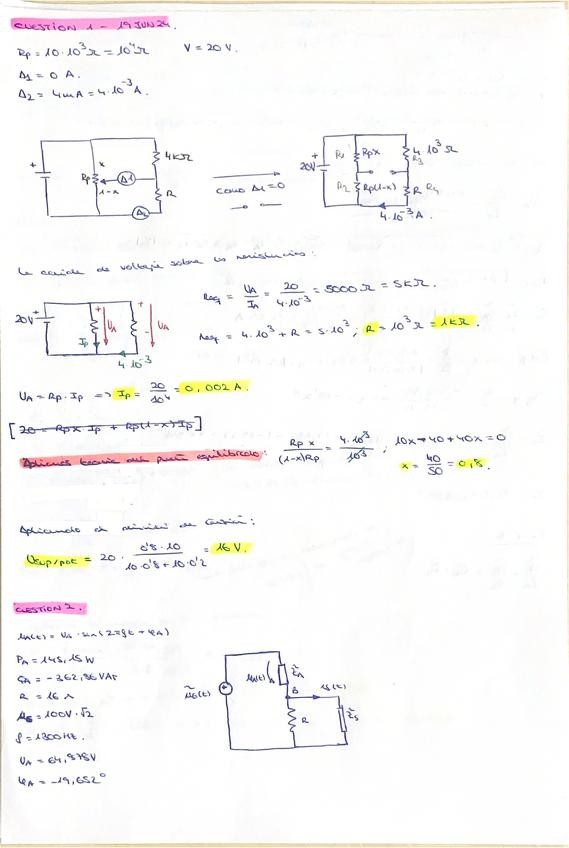 CUESTIÓN 1 - 19 JUN 24.
Rp = 10·10³Ω = 10⁴Ω V = 20 V.
Δ1 = 0 A.
Δ2 = 4mA = 4·10⁻³ A.
+ Rp x 1-x Δ1 4kΩ R Δ2
como Δ1=0
20V + R1 Rpx R2 Rp(1-x) 4·10³Ω R3 R R4
4·10⁻³ A.
la caída de voltaje sobre las resistencias:
Req = UA/IA = 20/4·10⁻³ = 5000 Ω = 5kΩ.
Req = 4·10³ + R = 5·10³; R = 10³ Ω = 1kΩ.
20V + Ip + UA - + UA -
4·10⁻³
UA = Rp·Ip => Ip = 20/10⁴ = 0,002 A.
[20 = Rpx Ip + Rp(1-x) Ip]
Aplicamos teoría del puente equilibrado: Rp x/(1-x)Rp = 4·10³/10³; 10x-40+40x=0
x = 40/50 = 0,8.
Aplicando el divisor de tensión:
Usup/pot = 20 · 0'8·10/10·0'8+10·0'2 = 16 V.
CUESTIÓN 2.
uA(t) = UA · sin(2πft + φA)
PA = 145,15 W
QA = -362,86 VAr
R = 16 Ω
UG = 100V·√2
f = 1300 Hz.
UA = 64,878V
φA = -19,652°
uG(t) uA(t) ZA B is(t) R Zs